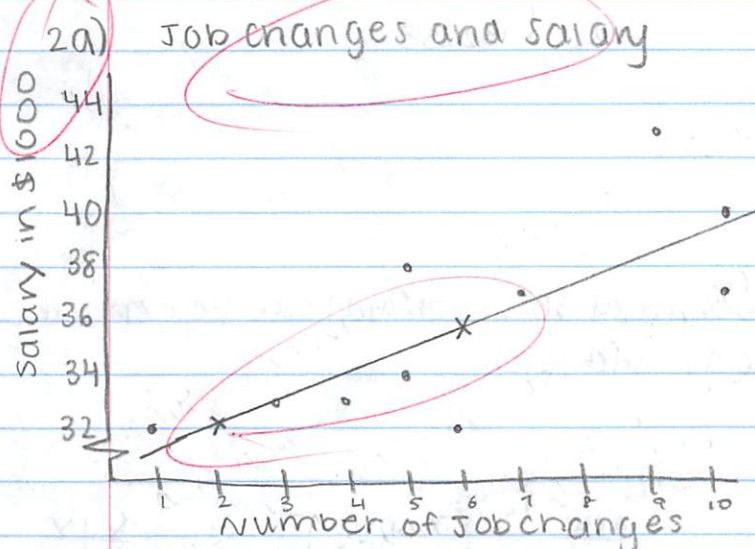 2a) Job changes and salary
Salary in $1000
44
42
40
38
36
34
32
1 2 3 4 5 6 7 8 9 10
Number of Job changes